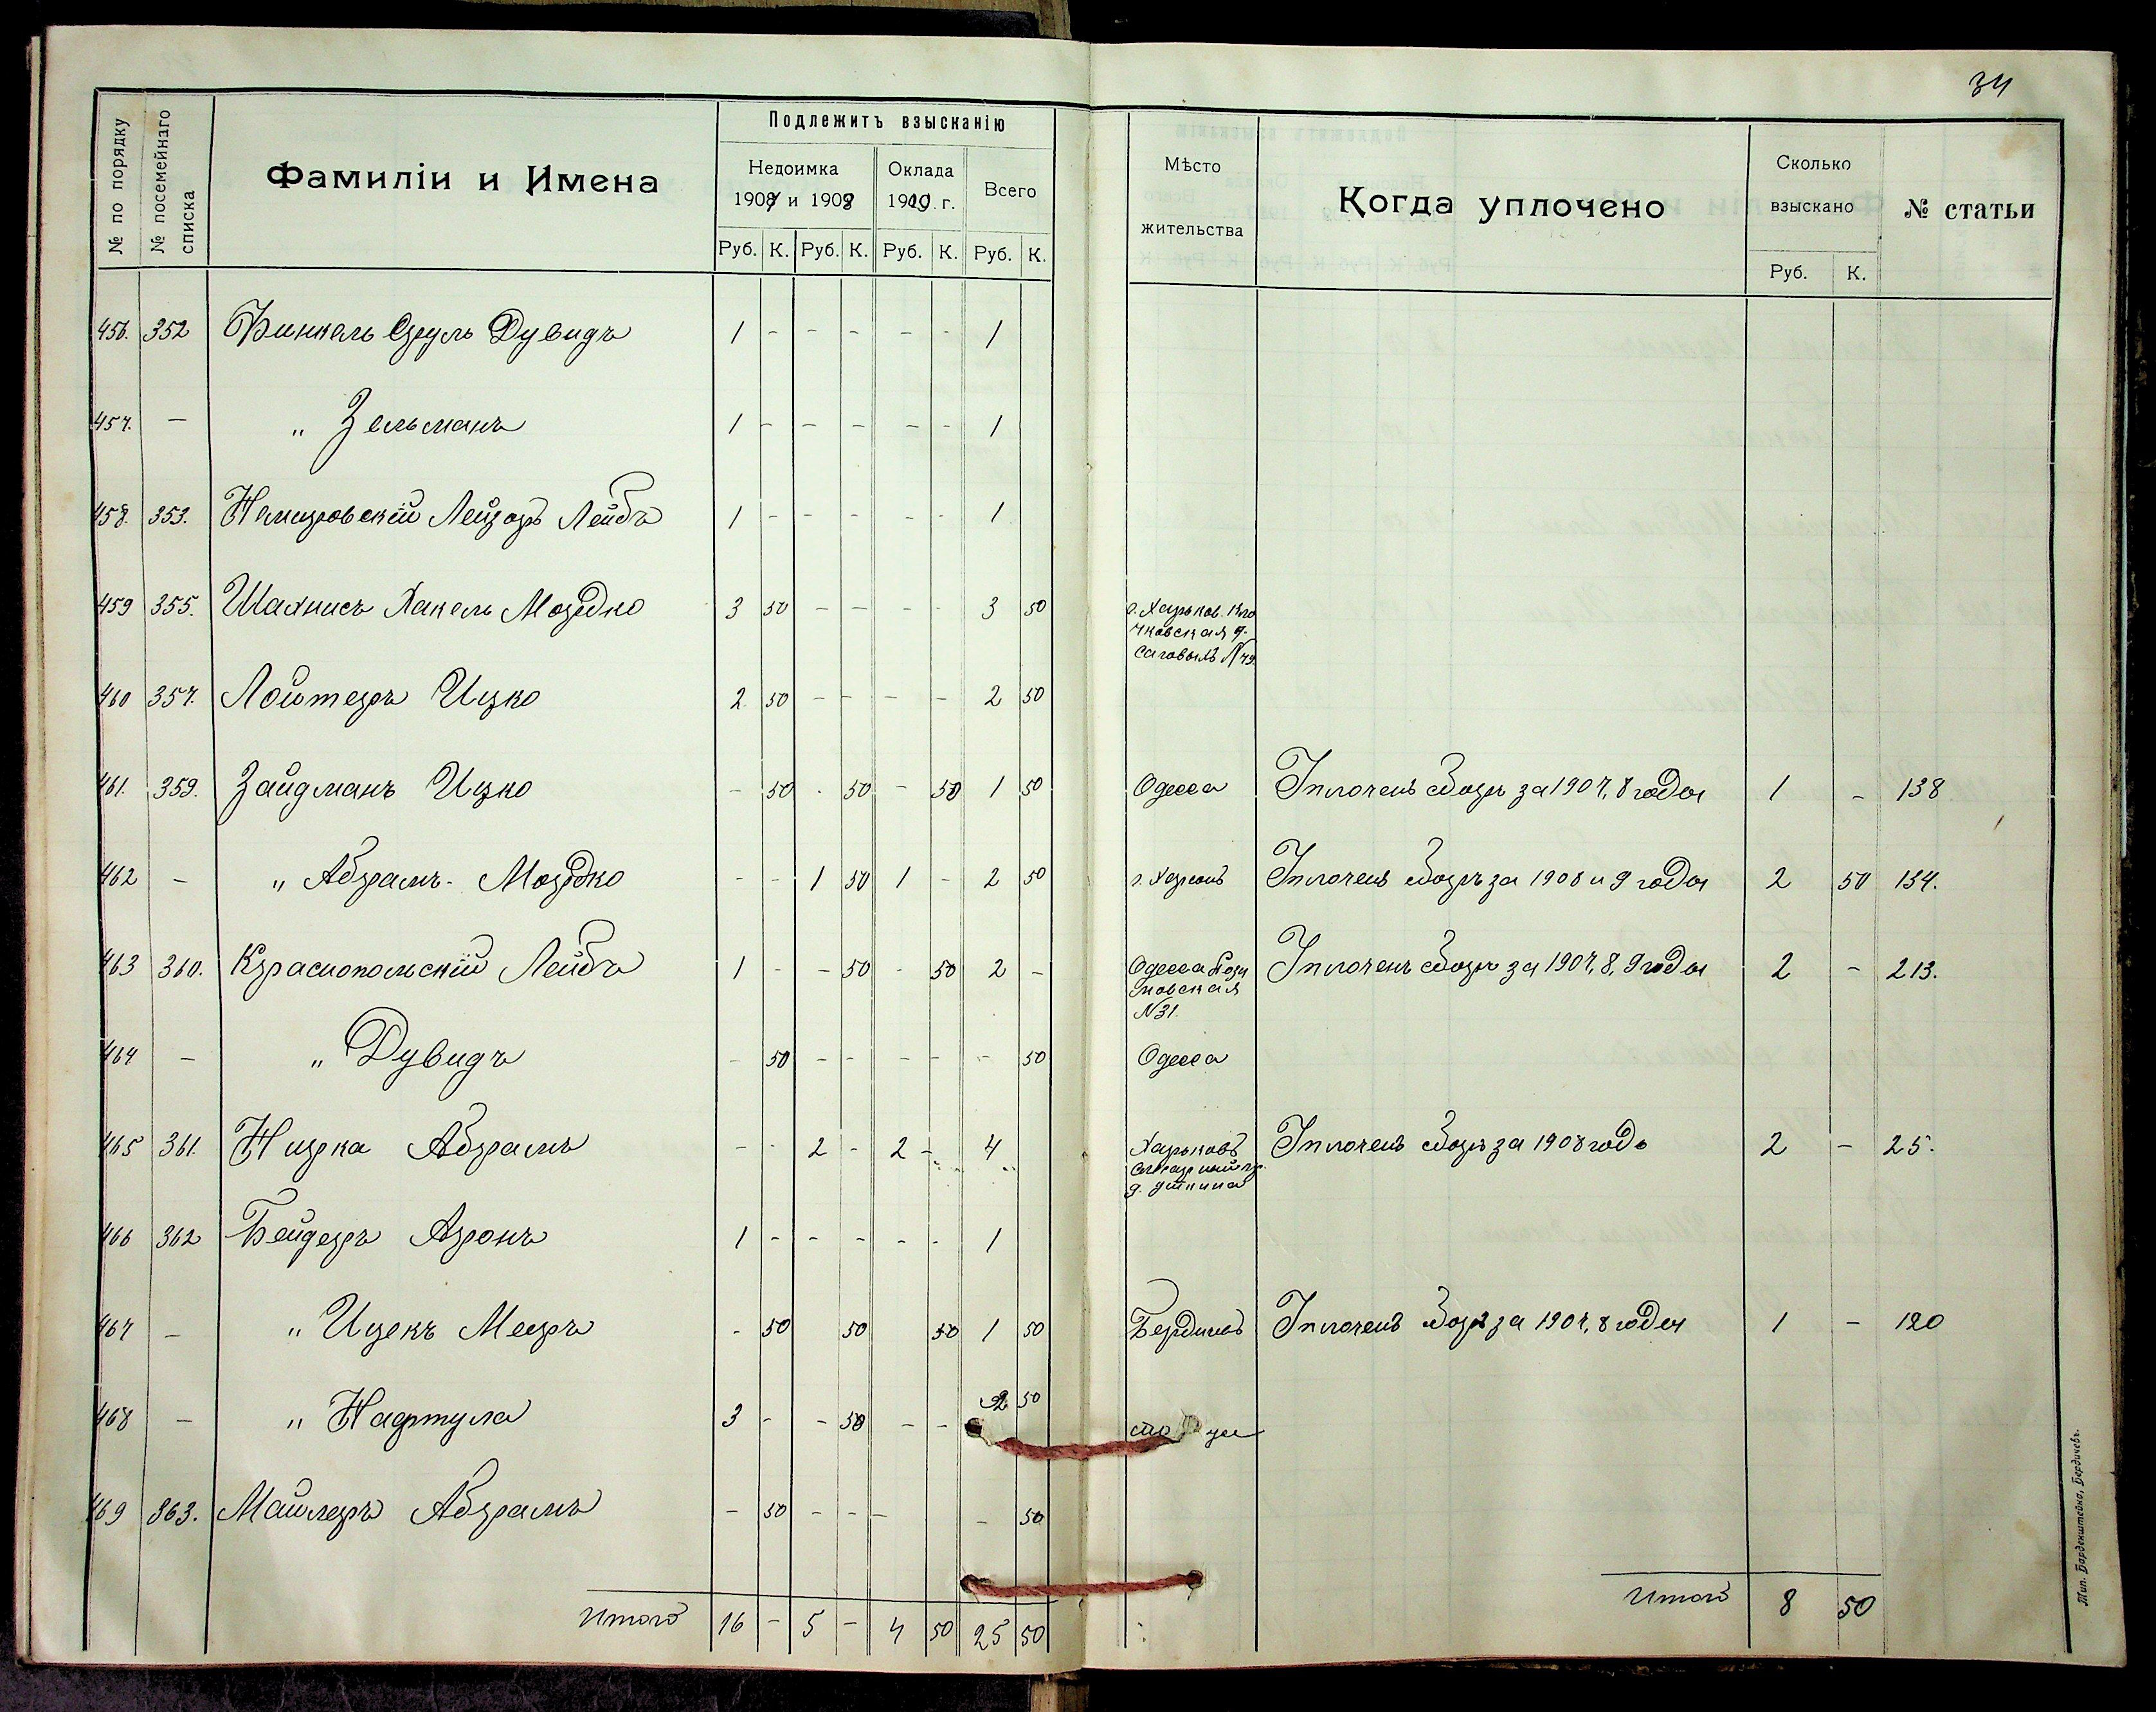 34
№ по порядку
№ посемейнаго списка
Фамиліи и Имена
Подлежитъ взысканію
Недоимка 1907 и 1908
Оклада 1909 г.
Всего
Руб. К. Руб. К. Руб. К. Руб. К.
Мѣсто жительства
Когда уплочено
Сколько взыскано
Руб. К.
№ статьи
456. 352 Финкель Сруль Дувидъ 1 - - - - - 1
457. - " Зельманъ 1 - - - - - 1
458. 353. Немировскій Лейзоръ Лейбъ 1 - - - - - 1
459 355. Шахнисъ Хакель Мордко 3 50 - - - - 3 50 г. Харьков. Кло
чковская д.
№ 49
460 357. Лойтеръ Ицко 2 50 - - - - 2 50
461. 359. Зайдманъ Ицко - 50 - 50 - 50 1 50 Одесса Уплоченъ сборъ за 1907, 8 годы 1 - 138
462 - " Абрамъ-Мордко - - 1 50 1 - 2 50 г. Херсонъ Уплоченъ сборъ за 1908 и 9 годы 2 50 134.
463 360. Краснопольскій Лейбъ 1 - - 50 - 50 2 - Одесса
N 31.
Уплоченъ сборъ за 1907, 8, 9 годы 2 - 213.
464 - " Дувидъ - 50 - - - - - 50 Одесса
465 361. Нирка Абрамъ - - 2 - 2 - 4 Харьковъ
д. Уткина
Уплоченъ сборъ за 1908 годъ 2 - 25.
466 362 Бейдеръ Аронъ 1 - - - - - 1
467 - " Ицекъ Мееръ - 50 50 50 1 50 Бердичевъ Уплоченъ сборъ за 1907, 8 годы 1 - 120
468 - " Нафтула 3 - - 50 - - 2 50
469 363. Майлеръ Абрамъ - 50 - - - - 50
Итого 16 - 5 - 4 50 25 50
Итого 8 50
Тип. Барденштейна, Бердичевъ.